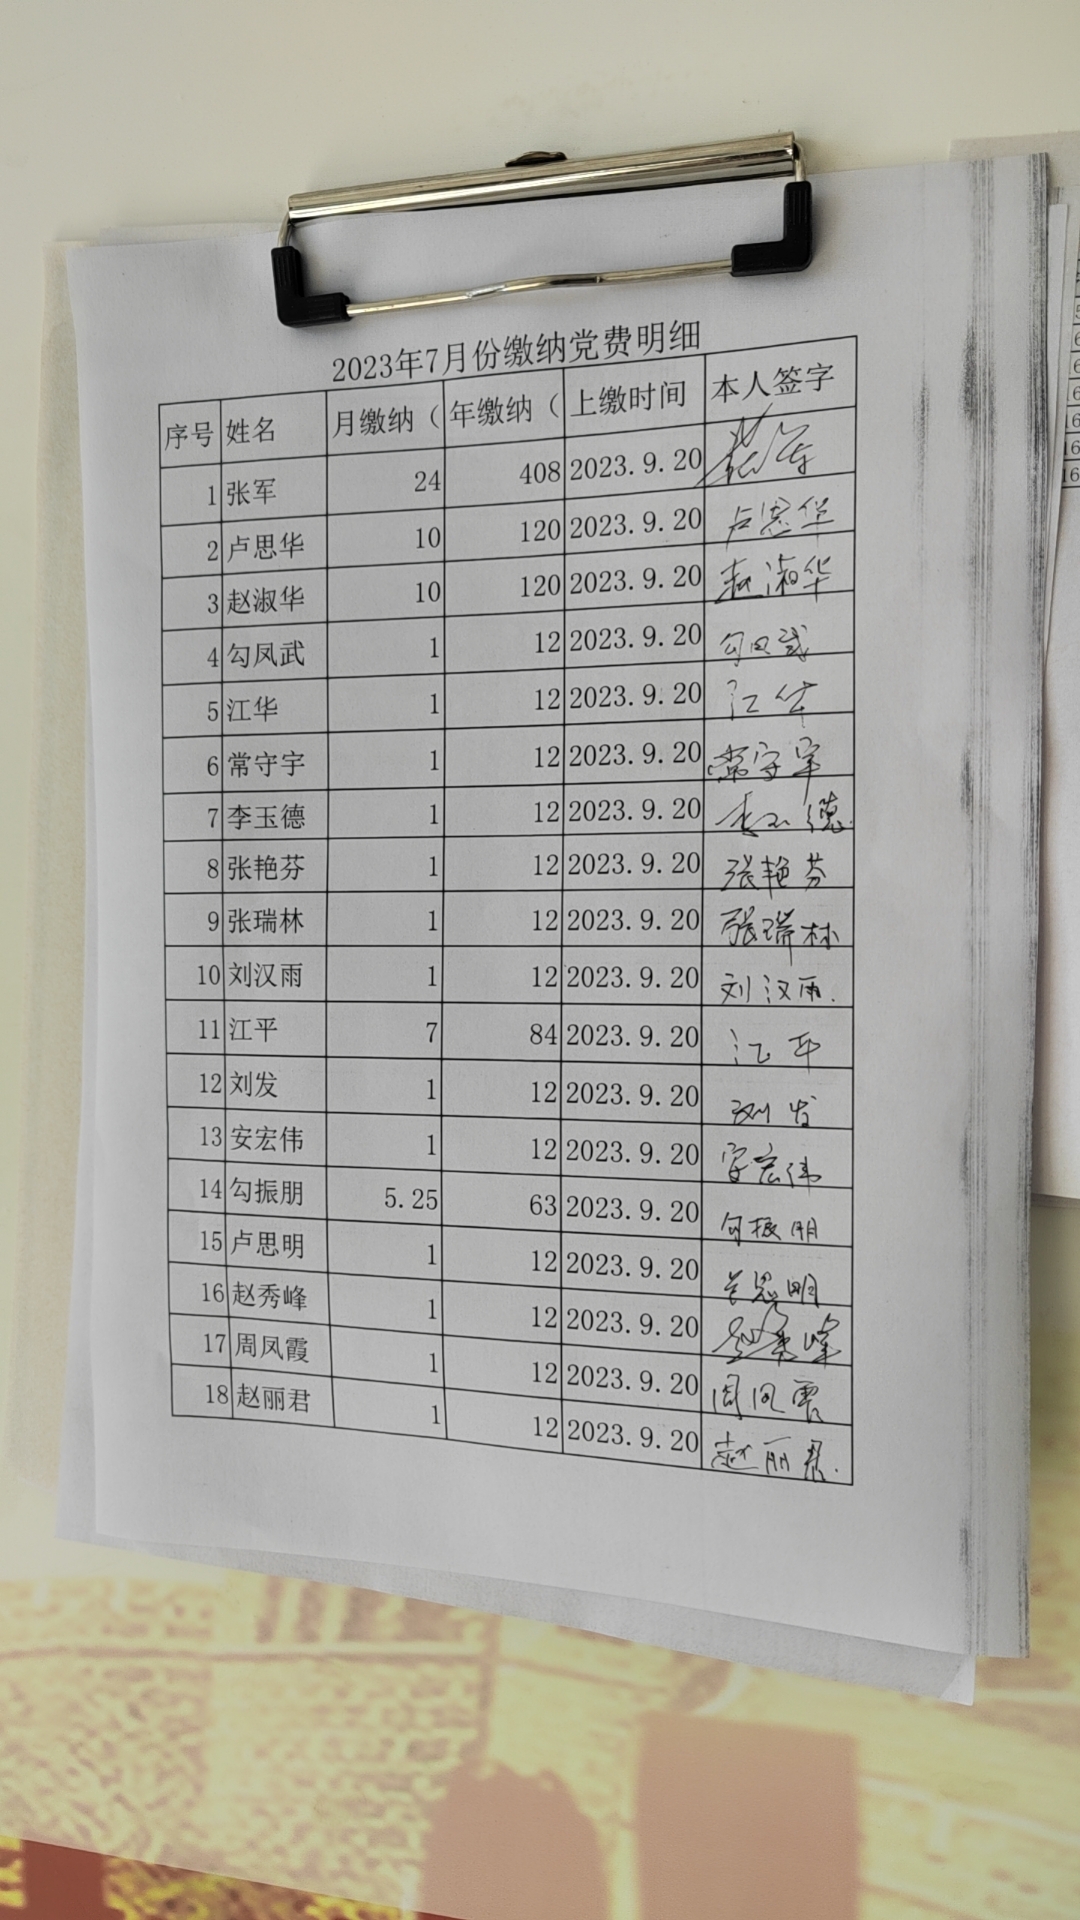 2023年7月份缴纳党费明细
序号 姓名 月缴纳（ 年缴纳（ 上缴时间 本人签字
1 张军 24 408 2023.9.20 张军
2 卢思华 10 120 2023.9.20 卢思华
3 赵淑华 10 120 2023.9.20 赵淑华
4 勾凤武 1 12 2023.9.20 勾凤武
5 江华 1 12 2023.9.20 江华
6 常守宇 1 12 2023.9.20 常守宇
7 李玉德 1 12 2023.9.20 李玉德
8 张艳芬 1 12 2023.9.20 张艳芬
9 张瑞林 1 12 2023.9.20 张瑞林
10 刘汉雨 1 12 2023.9.20 刘汉雨.
11 江平 7 84 2023.9.20 江平
12 刘发 1 12 2023.9.20 刘发
13 安宏伟 1 12 2023.9.20 安宏伟
14 勾振朋 5.25 63 2023.9.20 勾振朋
15 卢思明 1 12 2023.9.20 卢思明
16 赵秀峰 1 12 2023.9.20 赵秀峰
17 周凤霞 1 12 2023.9.20 周凤霞
18 赵丽君 1 12 2023.9.20 赵丽君.